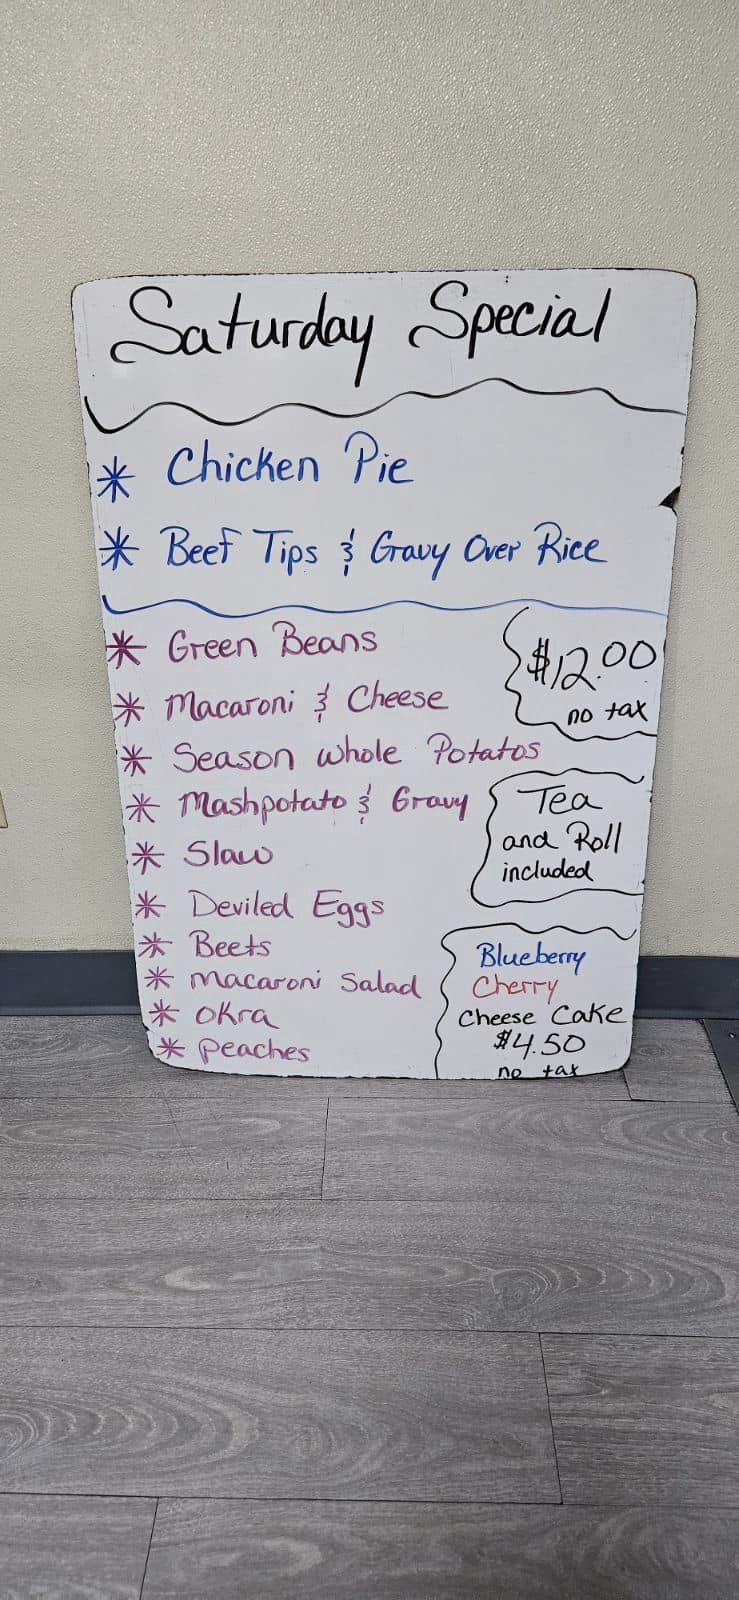 Saturday Special
* Chicken Pie
* Beef Tips & Gravy Over Rice
* Green Beans
* Macaroni & Cheese
* Season whole Potatos
* Mashpotato & Gravy
* Slaw
* Deviled Eggs
* Beets
* Macaroni Salad
* Okra
* Peaches
$12.00
no tax
Tea
and Roll
included
Blueberry
Cherry
Cheese Cake
$4.50
no tax